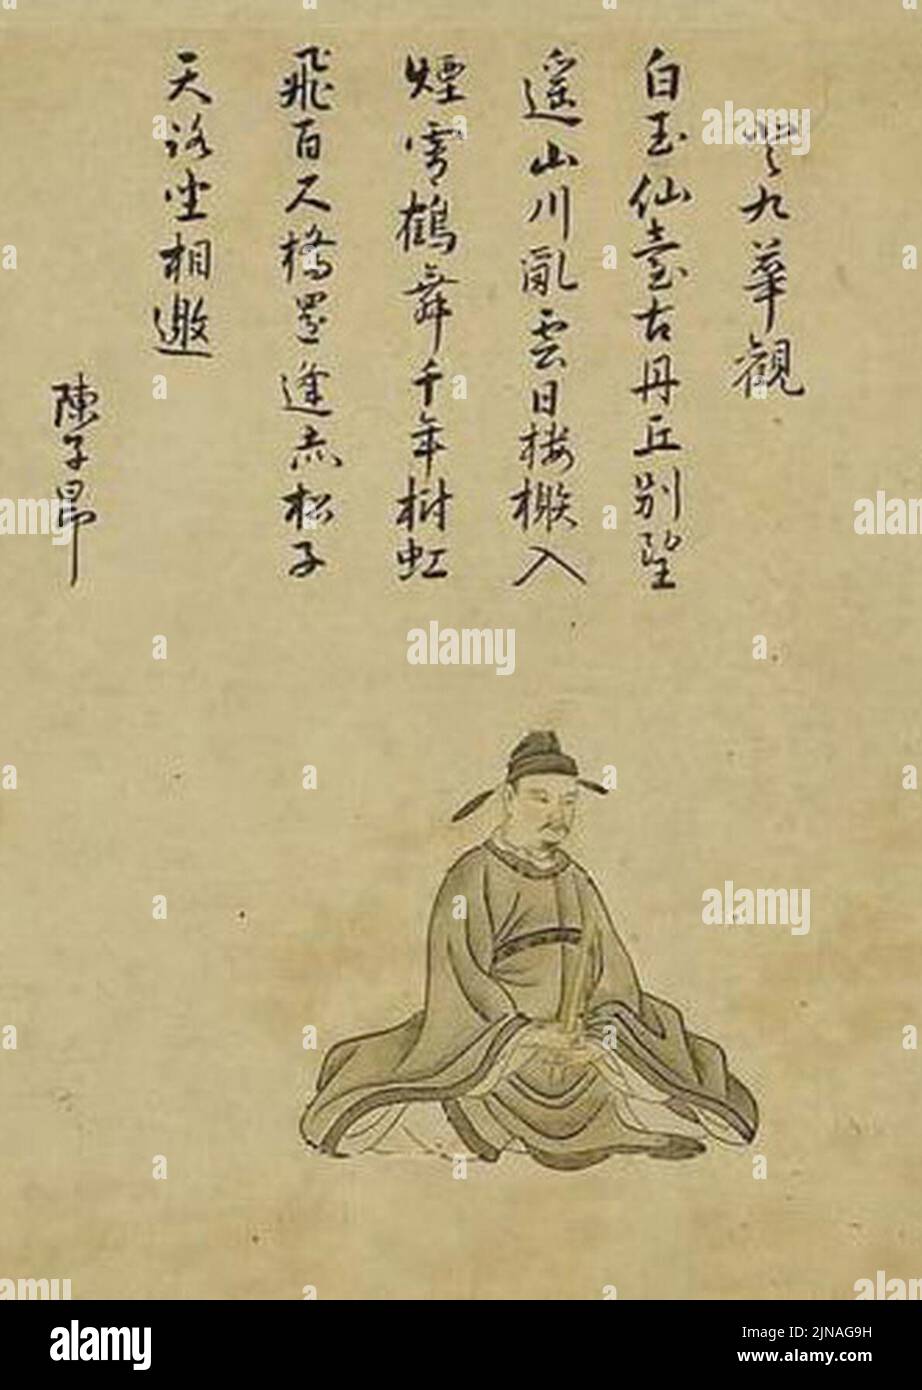 登九華觀
白玉仙臺古丹丘別望
遥山川亂雲日楼榭入
煙霄鶴舞千年樹虹
飛百尺橋還逢赤松子
天路坐相邀
陳子昂
alamy
Image ID: 2JNAG9H
www.alamy.com